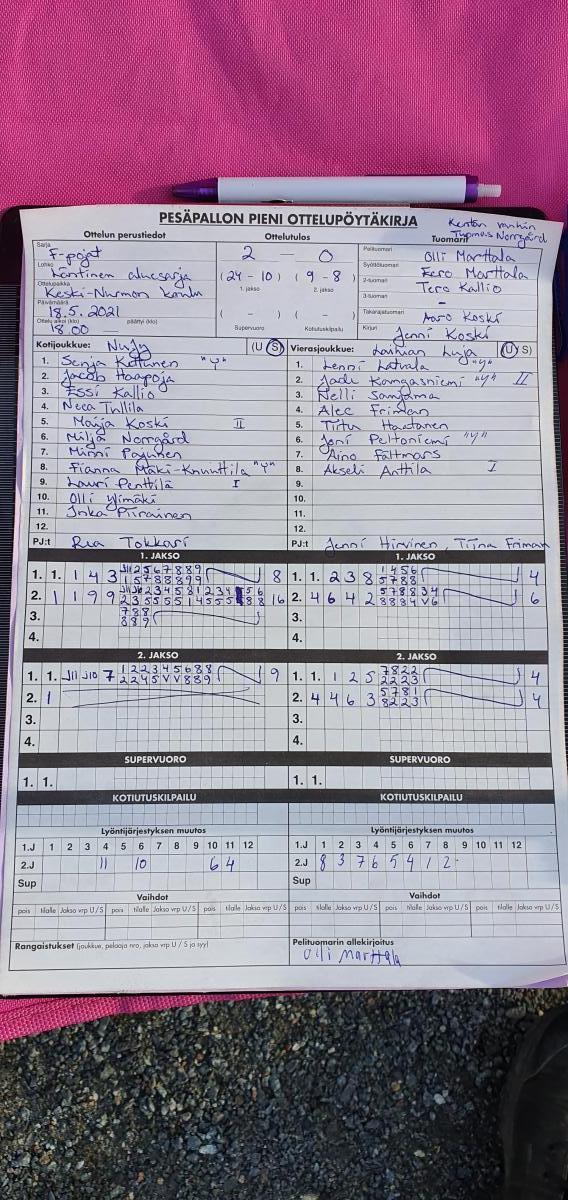 PESÄPALLON PIENI OTTELUPÖYTÄKIRJA
Kentän vanhin
Tuomas Norrgård
Ottelun perustiedot
Ottelutulos
Tuomarit
Sarja
F-pojat
Lohko
Läntinen aluesarja
Ottelupaikka
Keski-Nurmon koulu
Päivämäärä
18.5.2021
Ottelu alkoi (klo) päättyi (klo)
18.00
2 — 0
(24 - 10) (9 - 8)
1. jakso 2. jakso
( - ) ( - )
Supervuoro Kotiutuskilpailu
Pelituomari
Olli Marttala
Syöttötuomari
Eero Marttala
2-tuomari
Tero Kallio
3-tuomari
-
Takarajatuomari
Aaro Koski
Kirjuri
Jenni Koski
Kotijoukkue: NuJy (U S)
1. Senja Kettunen "Y"
2. Jacob Haapoja
3. Essi Kallio
4. Neea Tullila
5. Maija Koski II
6. Milja Norrgård
7. Minni Pajunen
8. Fianna Mäki-Knuuttila "Y"
9. Lauri Penttilä I
10. Olli Ylimäki
11. Inka Piirainen
12.
PJ:t Rea Tokkari
Vierasjoukkue: Laihian Luja (U S)
1. Lenni Latvala "Y"
2. Jade Kangasniemi "Y" II
3. Nelli Sanjama
4. Alec Friman
5. Tiitu Haatanen
6. Jeni Peltoniemi "Y"
7. Aino Fältmars
8. Akseli Anttila I
9.
10.
11.
12.
PJ:t Jenni Hirvinen, Tiina Friman
1. JAKSO
1. 1. 1 4 3
8
2. 1 1 9 9
16
3. 788
889
4.
1. JAKSO
1. 1. 2 3 8 1456
5788 4
2. 4 6 4 2 578834
8834V6 6
3.
4.
2. JAKSO
1. 1. J11 J10 7 122345688
2245VV889 9
2. 1
3.
4.
2. JAKSO
1. 1. 1 2 5 7822
2223 4
2. 4 4 6 3 5781
8223 4
3.
4.
SUPERVUORO
1. 1.
SUPERVUORO
1. 1.
KOTIUTUSKILPAILU
KOTIUTUSKILPAILU
Lyöntijärjestyksen muutos
1.J 1 2 3 4 5 6 7 8 9 10 11 12
2.J 11 10 6 4
Sup
Lyöntijärjestyksen muutos
1.J 1 2 3 4 5 6 7 8 9 10 11 12
2.J 8 3 7 6 5 4 1 2
Sup
Vaihdot
pois tilalle Jakso vrp U/S pois tilalle Jakso vrp U/S pois tilalle Jakso vrp U/S
Vaihdot
pois tilalle Jakso vrp U/S pois tilalle Jakso vrp U/S pois tilalle Jakso vrp U/S
Rangaistukset (joukkue, pelaaja nro, jakso vrp U / S ja syy)
Pelituomarin allekirjoitus
Olli Marttala